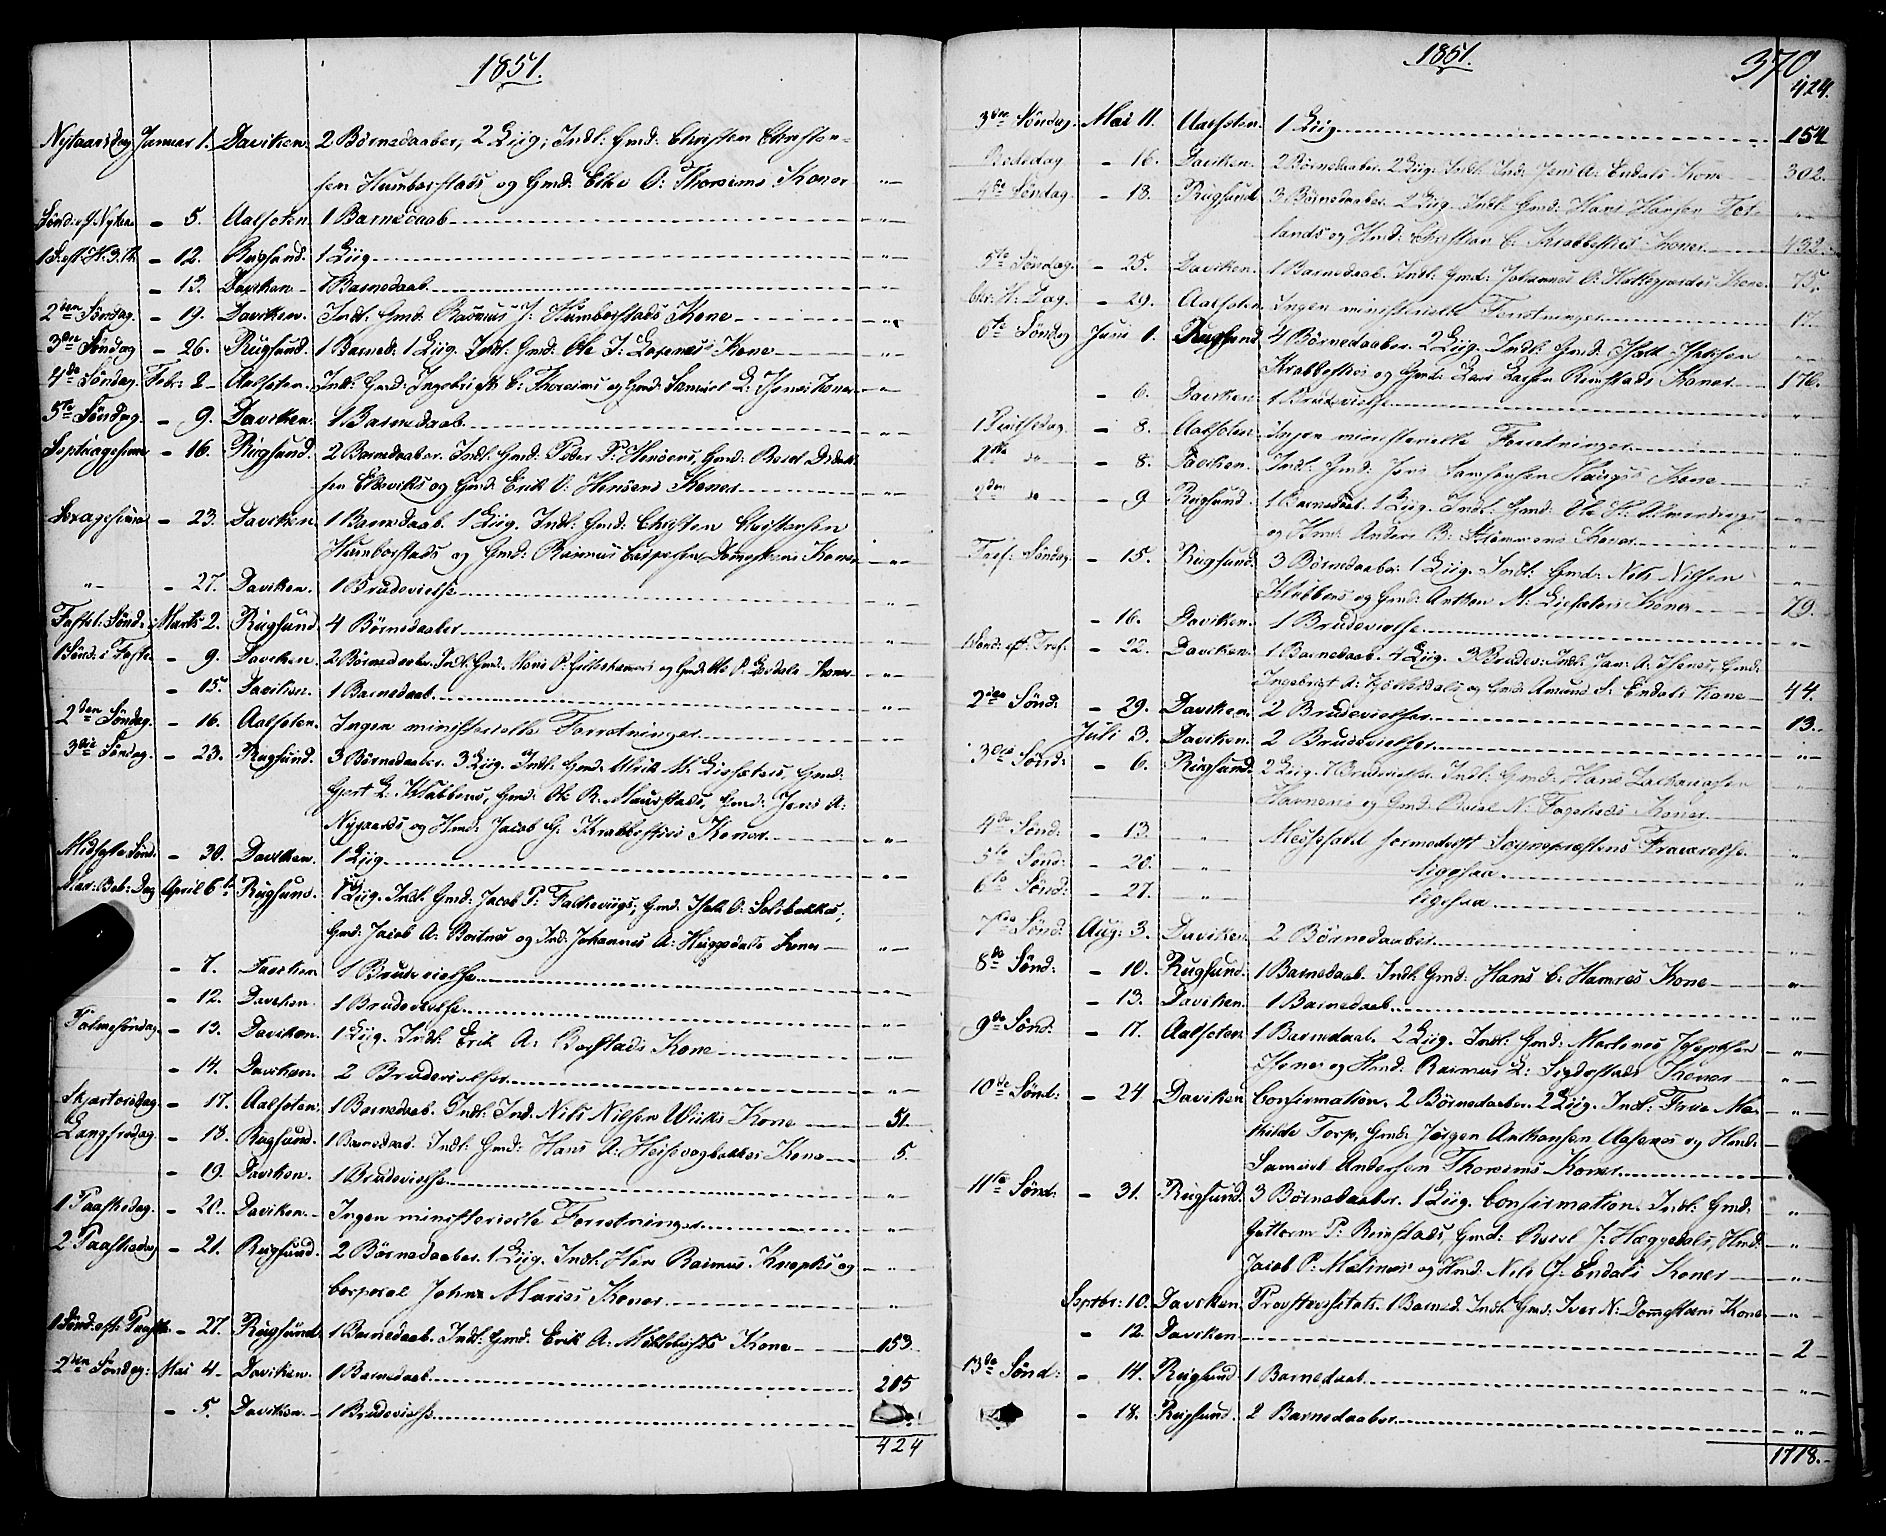 1851.
Nytaarsdag Januar 1. Daviken. 2 Børnedaaber, 2 Liig; Indl: Gmd: Christen Christen-
sen Humborstads og Gmd: A: Thoreims Koner "
Sønd: ef. Nytaar - 5. Aalfoten 1 Barnedaab "
1 S. eft. H. 3. K. - 12. Rugsund. 1 Liig "
- 13. Daviken 1 Barnedaab "
2den Søndag. - 19. Daviken. Indl: Gmd: Rasmus J: Humborstads Kone "
3die Søndag - 26. Rugsund. 1 Barned: 1 Liig. Indl: Gmd: Ole J: Kone "
4de Søndag. Feb: 2 Aalfoten. Indl: Gmd: Ingebrigt C: Thoreims og Gmd: Samuel L: Koner "
5te Søndag. - 9. Daviken. 1 Barnedaab "
Septuagesima - 16. Rugsund. 2 Barnedaaber. Indl: Gmd: Peder P: Henøens, Gmd: Didrik-
sen og Gmd: Erik O: Henøens Koner "
Sexagesima - 23. Daviken. 1 Barnedaab. 1 Liig. Indl: Gmd: Christen Christensen
Humborstads og Gmd: Rasmus Domestens Koner "
" - 27. Daviken. 1 Brudevielse "
Fastel: Sønd: Marts 2. Rugsund 4 Børnedaaber "
1 Sønd: i Faste - 9. Daviken. 2 Børnedaaber. Indl: Gmd: Hans P: og Gmd: Ole P: Koner "
- 15. Daviken. 1 Barnedaab "
2den Søndag. - 16. Aalfoten. Ingen ministerielle Forretninger "
3die Søndag. - 23. Rugsund. 3 Børnedaaber. 3 Liig. Indl: Gmd: Ulrik M: Gmd:
Gjert L: Klubbens, Gmd: Ole R: Maurstads, Gmd: Jens A:
Nygaards og Hmd: Jacob G: Krabbesties Koner "
Midfaste Sønd. - 30. Daviken. 1 Liig "
Mar: Beb: Dag April 6te Rugsund. Liig. Indl: Gmd: Jacob P: Falkevigs, Gmd: Isak O: Solibakkes,
Gmd: Jacob A: Bortnes og Ind: Johannes A: Heggedals Koner "
- 7. Daviken 1 Brudevielse "
- 12. Daviken. 1 Brudevielse "
Palmesøndag - 13. Daviken. 1 Liig. Indl: Erik A: Borstads Kone "
- 14. Daviken. 2 Brudevielser "
Skjærtorsdag. - 17. Aalfoten. 1 Barnedaab. Indl: Ind: Nils Nilsen Kone 51.
Langfredag. - 18. Rugsund. 1 Barnedaab. Indl: Gmd: Hans A: Kone 5.
- 19. Daviken. 1 Brudevielse "
1 Paaskedag. - 20. Daviken. Ingen ministerielle Forretninger "
2 Paaskedag - 21. Rugsund. 2 Børnedaaber. 1 Liig. Indl: Herr Rasmus og
Corporal Johan Koner "
1 Sønd: eft: Paaske - 27. Rugsund. 1 Barnedaab. Indl: Gmd: Erik A: Kone 153.
2den Søndag: Mai 4 Daviken. 1 Barnedaab 215
- 5. Daviken. 1 Brudevielse
424
1851. 370
424.
3die Søndag. Mai 11. Aalfoten. 1 Liig 154
Bededag - 16. Daviken. 2 Børnedaaber. 2 Liig. Indl: Ind: Jens A: Endals Kone 302.
4de Søndag - 18. Rugsund 3 Børnedaaber. 2 Liig. Indl: Gmd: Hans Hansen "
lands og Hmd: Christian C: Krabbesties Koner 432.
5te Søndag. - 25. Daviken. 1 Barnedaab. Indl: Gmd: Johannes O: Kone 75.
Chr: H: Dag. - 29. Aalfoten Ingen ministerielle Forretninger 17.
6te Søndag Juni 1. Rugsund 4 Børnedaaber. 2 Liig. Indl: Gmd: Isak Isaksen "
Krabbesties og Gmd: Lars Larsen Rimstads Koner 176.
- 6. Daviken. 1 Brudevielse "
1 Pintsedag. - 8. Aalfoten Ingen ministerielle Forretninger "
2den do - 8. Daviken. Indl: Gmd: Jens Samsonsen Kone "
2den do - 9 Rugsund. 1 Barnedaab. 1 Liig. Indl: Gmd: Ole H: "
og Hmd: Anders B: Koner "
Tref: Søndag - 15. Rugsund. 3 Børnedaaber. 1 Liig. Indl: Gmd: Nils Nilsen "
Klubbens og Gmd: Anthon M: Koner 79.
- 16. Daviken. 1 Brudevielse "
Sønd: eft: Tref. - 22. Daviken. 1 Barnedaab. 4 Liig. 3 Brudev: Indl: Jan: A: Gmd:
Ingebrigt A: og Gmd: Amund S: Endals Kone 44.
2den Sønd: - 29. Daviken. 2 Brudevielser 13.
Juli 3. Daviken. 2 Brudevielser "
3die Sønd: - 6. Rugsund. 2 Liig. 1 Brudevielse. Indl: Gmd: Hans Zachariasen "
Havnens og Gmd: N: Koner "
4de Sønd: - 13. " Messefald formedelst Sognepræstens Fraværelse "
5te Sønd: - 20. " ligesaa "
6te Sønd: - 27. " ligesaa "
7de Sønd: Aug: 3. Daviken 2 Børnedaaber "
8de Sønd: - 10. Rugsund. 1 Barnedaab. Indl: Gmd: Hans C: Hamres Kone "
- 13. Daviken. 1 Barnedaab "
9de Sønd: - 17. Aalfoten. 1 Barnedaab. 2 Liig. Indl: Gmd: Martinus Josephsen "
og Hmd: Rasmus L: Sigdestads Koner "
10de Sønd: - 24 Daviken Confirmation. 2 Børnedaaber. 2 Liig. Indl: Frue Ma- "
thilde Torp, Gmd: Jørgen Anthonsen og Hmd:
Samuel Andersen Thoreims Koner "
11te Sønd: - 31. Rugsund. 3 Børnedaaber. 1 Liig. Confirmation. Indl: Gmd: "
Guttorm P: Rimstads, Gmd: J: Heggedals, Hmd: "
Jacob P: og Hmd: Nils J: Endals Koner "
Septbr: 10. Daviken. Provstevisitats. 1 Barned: Indl: Gmd: Iver N: Domestens Kone "
- 12. Daviken 2
13de Sønd: - 14. Rugsund. 1 Barnedaab "
- 18. Rugsund. 2 Barnedaaber "
1718.